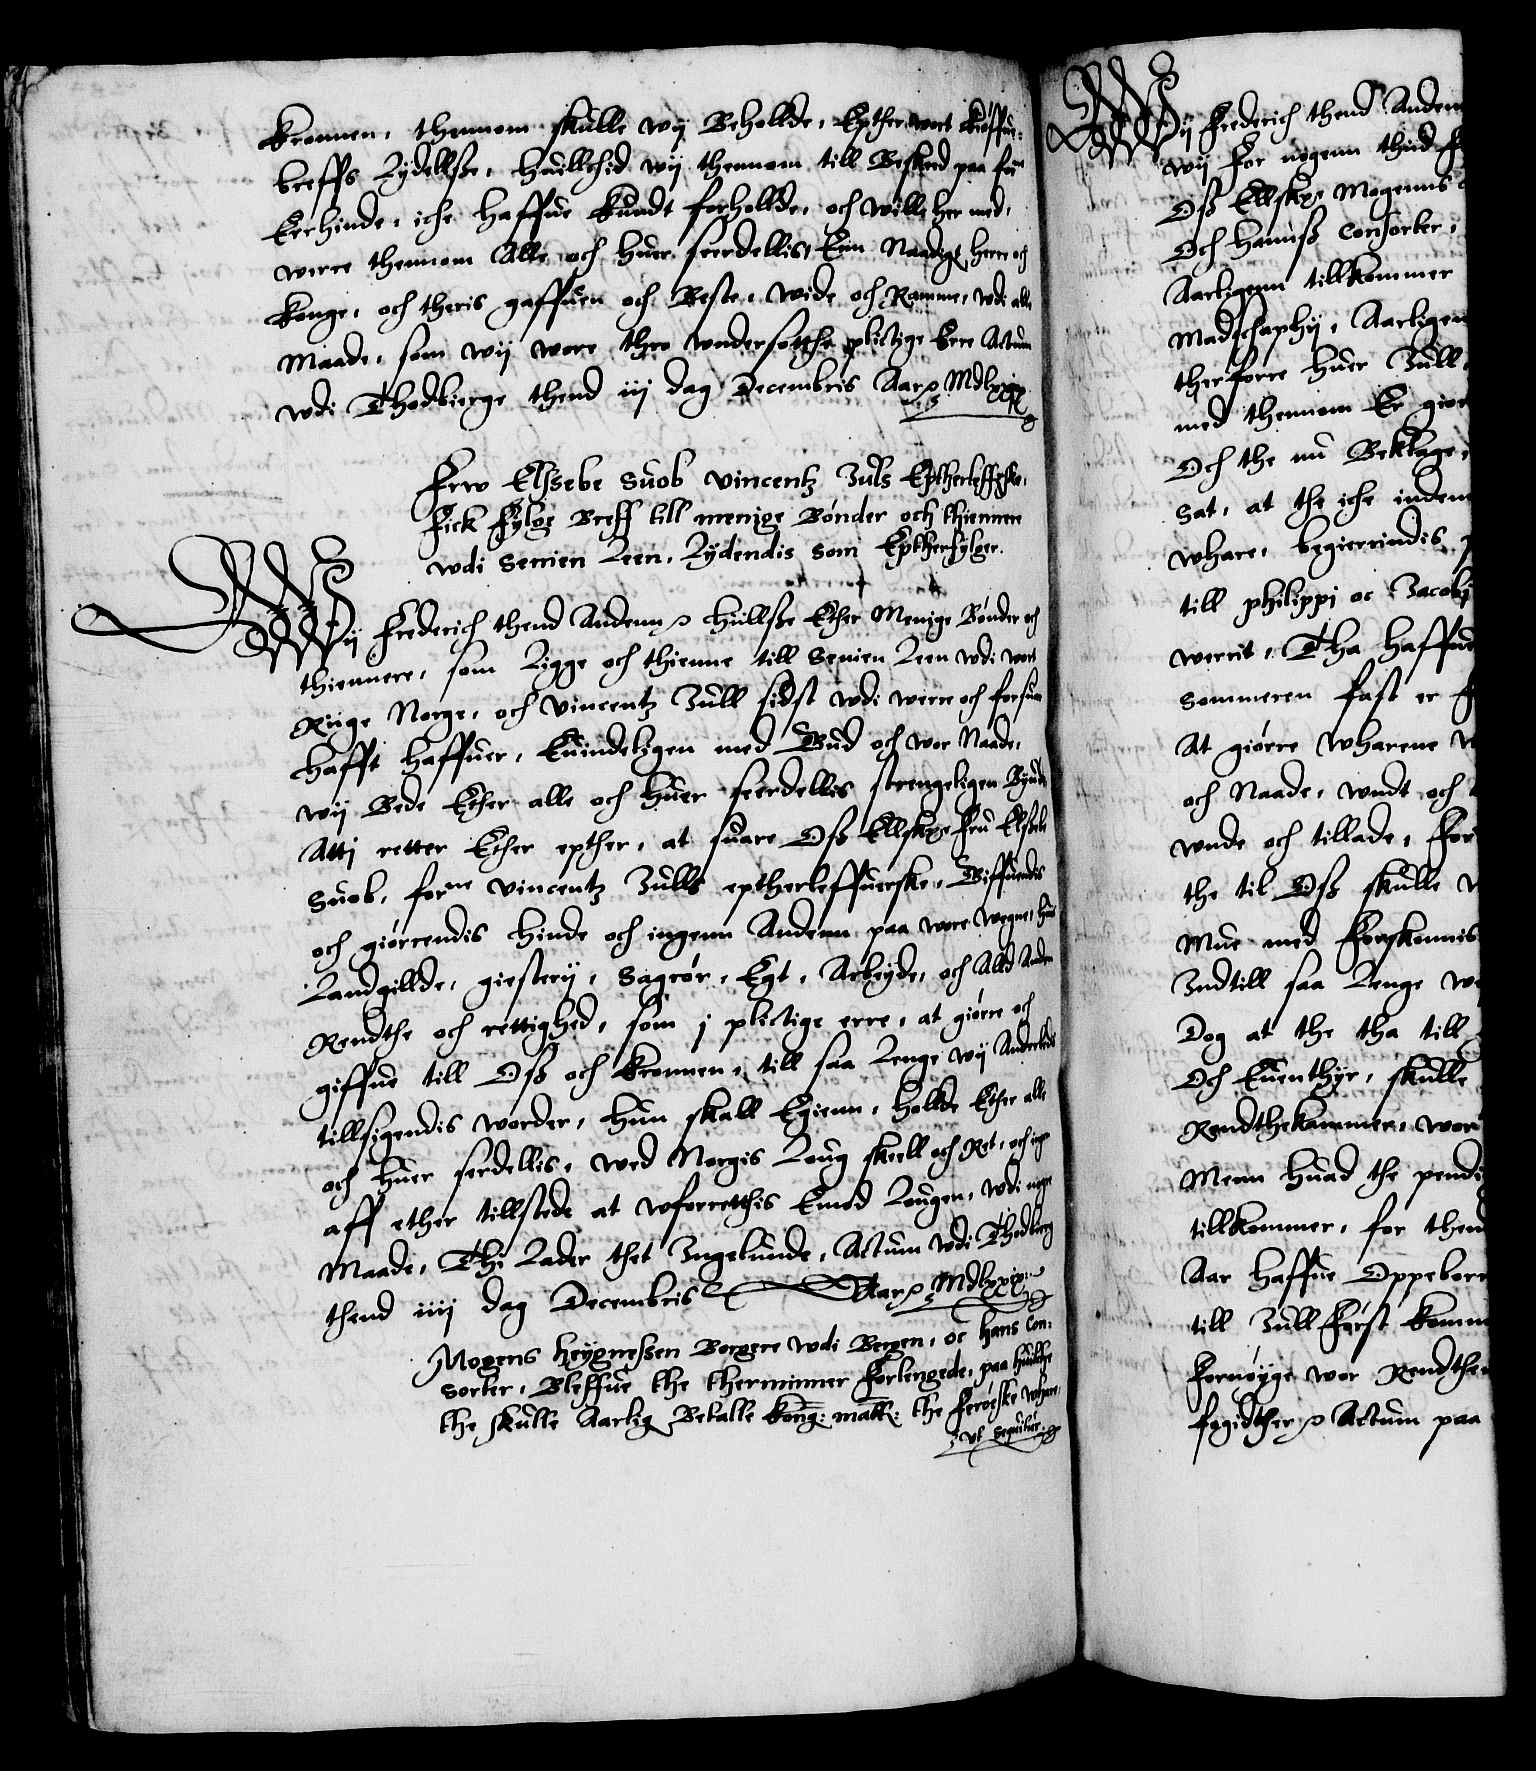 Kronnen, thennom skulle wij Beholde, Epther wort Kiøffue¬
breffs Lydellsse, huillchid wij thennom till Beskeed paa før
Eerhinde, iche haffue kundt forhollde, och wille her med,
werre thennom Alle och huer seerdellis, Enn Naadige herre och
Konge, och theris gaffuen och Beste, wide och Ramme, wdi alle
Maade, som wij wore thro wndersotthe plictige Erre Actum
wdi Skodbierge thend iij dag Decembris Aar &c Mdlxxix
Frw Elssebe Suob Vincentz Juls Eptherleffske,
Fick Fylge Breff till menige Bønder och thienner
wdi Senien Leen, Lydendis som Eptherfylger.
Wij Frederich thend Andenn &c Hillsse Ether Menige Bønder och
thiennere, som Ligge och thienne till Senien Leen wdi wort
Riige Norge, och Vincentz Jull sidst wdi werre och forsuar
hafft haffuer, Euindeligen med Gud och wor Naade,
wij Bede Ether alle och huer seerdellis strengeligen Byude
Atti retter Ether epther, at suare Oss Ellskre Fru Elssebe
Suob, forne Vincentz Julls eptherleffuerske, Giffuendis
och giørrendis hinde och ingenn Andenn paa wore wegne, hues
Landgillde, giesterij, Sageør, Egt, Arbeyde, och Alld Anden
Rendthe och rettighed, som j plictige erre, at giøre och
giffue till Oss och Kronnen, till saa Lenge wij Anderledis
tillsigendis worder, hun skall Egienn, holde Ether alle
och huer serdellis, wed Norgis Loug skeell och Ret, och inge
aff ether tillstede at wforretthis Emod Lougen, wdi noge
Maade, Thi Lader thet Ingelunde, Actum wdi Skodbierg
thend iiij dag Decembris Aar &c Mdlxxix
Mogens heygnessen Borgere wdi Bergen, oc hans Con¬
sorter, Bleffue the therminner Forlengede, paa huilche
the skulle Aarlig Betalle Kong: matt: the Ferøeske whare,
vt sequitur
Wij Frederich thend Anden
wij For nogenn thiid
Oss Ellskr Mogenns
Och hanns Consorter,
Aarligenn tillkommer
Madschaphij, Aarligen
therforre huer Jull,
med thennom Er giort
Och the nu Beklage,
Sat, at the iche inden
whare, begierrindis
till philippi oc Jacobi
werrit, Tha haffue
Sommeren fast er
At giørre wharene
och Naade, wndt och
wnde och tillade, For
the til Oss skulle
Mue med Forskonnis
Indtill saa Lenge
Dog at the tha till
Och Euenthyr, skulle
Rendthekammer, wor
Menn huad the pendi
tillkommer, for thend
Aar haffue Oppebor
till Jull Først komm
Fornøyge wor Rendthe
fogidther &c Actum paa